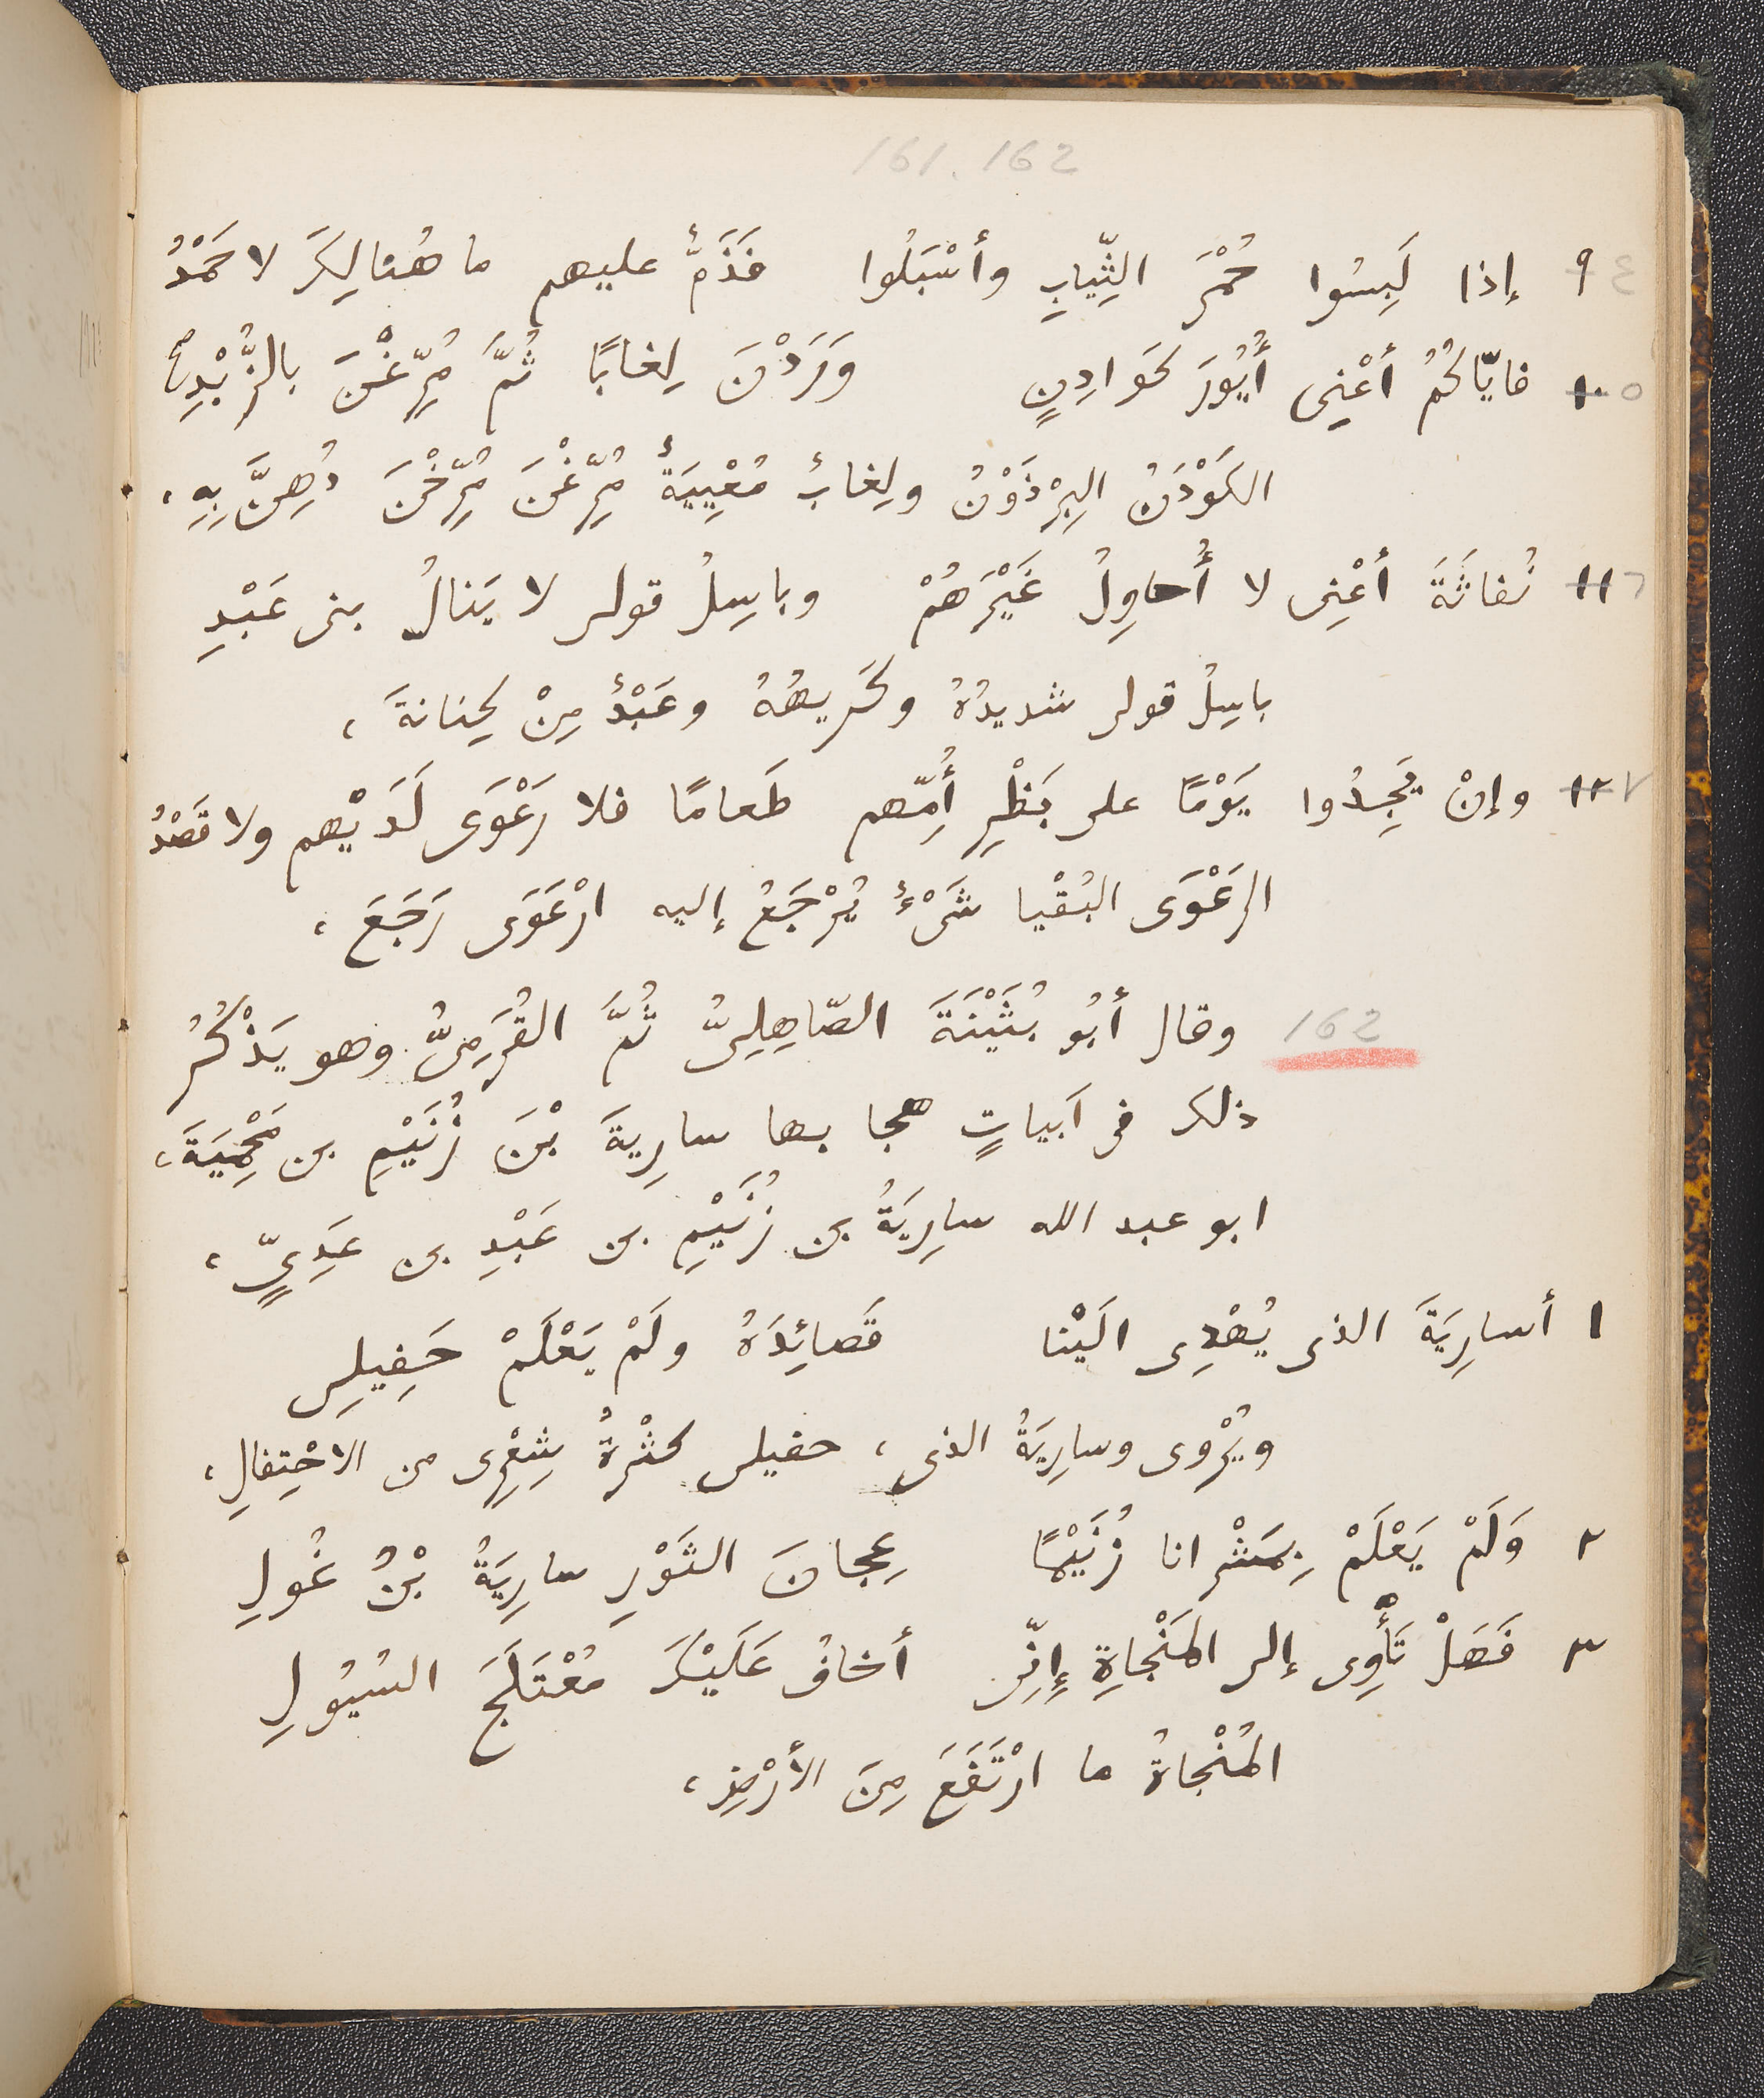 161. 162
٤ ٩ إذا لَبِسُوا حُمْرَ الثِّيابِ وأسْبَلُوا فَذَمٌّ عليهم ما هُنالِكَ لا حَمْدُ
٥ ١٠ فايّاكُمُ أعْنِى أُيُورَ كَوادِنٍ وَرَدْنَ لِغابًا ثُمَّ مُرِّغْنَ بالزُّبْدِ
الكَوْدَنُ البِرْذَوْنُ ولِغابٌ مُعْيِيَةٌ مُرِّغْنَ مُرِّخْنَ دُهِنَّ بِهِ ،
٦ ١١ نُفاثَةَ أعْنِى لا أُحاوِلُ غَيْرَهُمْ وباسِلُ قولى لا يَنالُ بنى عَبْدِ
باسِلُ قولى شديدُهُ وكَريهُهُ وعَبْدٌ مِنْ كِنانةَ ،
٧ ١٢ وإنْ يَجِدُوا يَوْمًا على بَظْرِ أُمِّهم طَعامًا فلا رَعْوَى لَدَيْهم ولا قَصْدُ
الرَعْوَى البُقْيا شَىْءٌ يُرْجَعُ إليه ارْعَوَى رَجَعَ ،
162 وقال أبُو بُثَيْنَةَ الصّاهِلِىُّ ثُمَّ القُرَمِىُّ وهو يَذْكُرُ
ذلك فى اَبياتٍ هجا بها سارِيةَ بْنَ زُنَيْمِ بن مَحْمِيَةَ ،
ابو عبد الله سارِيَةُ بن زُنَيْمِ بن عَبْدِ بن عَدِىٍّ ،
١ أسارِيَةَ الذى يُهْدِى الَيْنا قَصائِدَهُ ولَمْ يَعْلَمْ حَفِيلِى
ويُرْوى وسارِيَةُ الذى ، حفيلى كثْرةُ شِعْرِى من الاحْتِفالِ ،
٢ وَلَمْ يَعْلَمْ بِمَشْرانا زُنَيْمًا عِجانَ الثَوْرِ سارِيَةُ بْنُ غُولِ
٣ فَهَلْ تَأْوِى إلى المَنْجاةِ إِنِّى أخافُ عَلَيْكَ مُعْتَلَجَ السُيُولِ
المُنْجاةُ ما ارْتَفَعَ مِنَ الأرْضِ ،